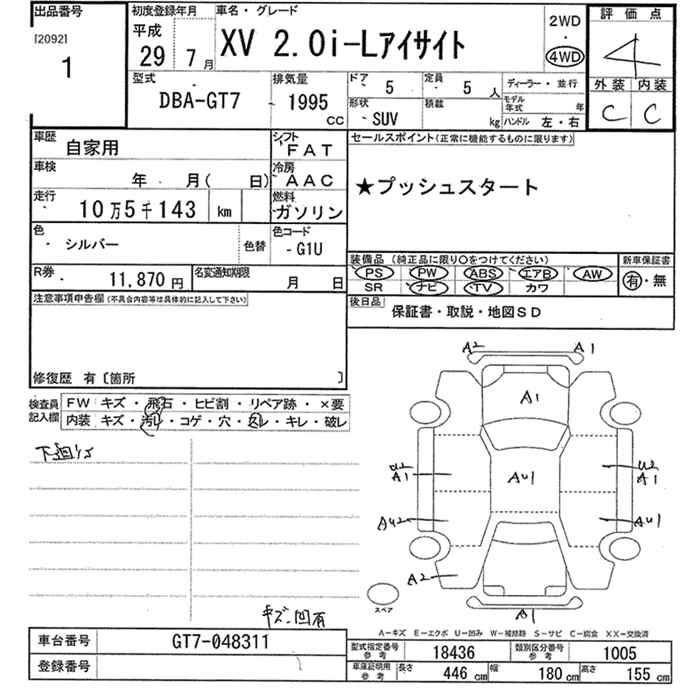 出品番号
[2092]
1
初度登録年月
平成
29 7月
車名・グレード
XV 2.0i-Lアイサイト
2WD
・
4WD
評価点
4
外装 内装
C C
型式
DBA-GT7
排気量
1995
CC
ドア
5
定員
5 人
形状
SUV
積載
kg
ディーラー・並行
モデル年式 年
ハンドル 左・右
車歴
自家用
シフト
FAT
車検
年 月( 日)
冷房
AAC
走行
10万5千143 km
燃料
ガソリン
色
シルバー
色替
色コード
G1U
R券
11,870円
名変通知期限
月 日
セールスポイント(正常に機能するものに限ります)
★プッシュスタート
装備品(純正品に限り○をつけてください)
新車保証書
PS PW ABS エアB AW
SR ナビ TV カワ
有・無
後日品
保証書・取説・地図SD
注意事項申告欄(不具合内容等は具体的に記入して下さい)
修復歴 有〔箇所 〕
検査員記入欄
FW キズ・飛石・ヒビ割・リペア跡・×要
内装 キズ・汚レ・コゲ・穴・スレ・キレ・破レ
下廻りS
キズ、凹有
A2 A1
A1
U2
A1
AU1
U2
A1
AU2
AU1
A2
A1
スペア
A-キズ E-エクボ U-凹み W-補修跡 S-サビ C-腐食 XX-交換済
車台番号
GT7-048311
登録番号
型式指定番号
参考
18436
類別区分番号
参考
1005
車庫証明用
参考
長さ
446 cm
幅
180 cm
高さ
155 cm